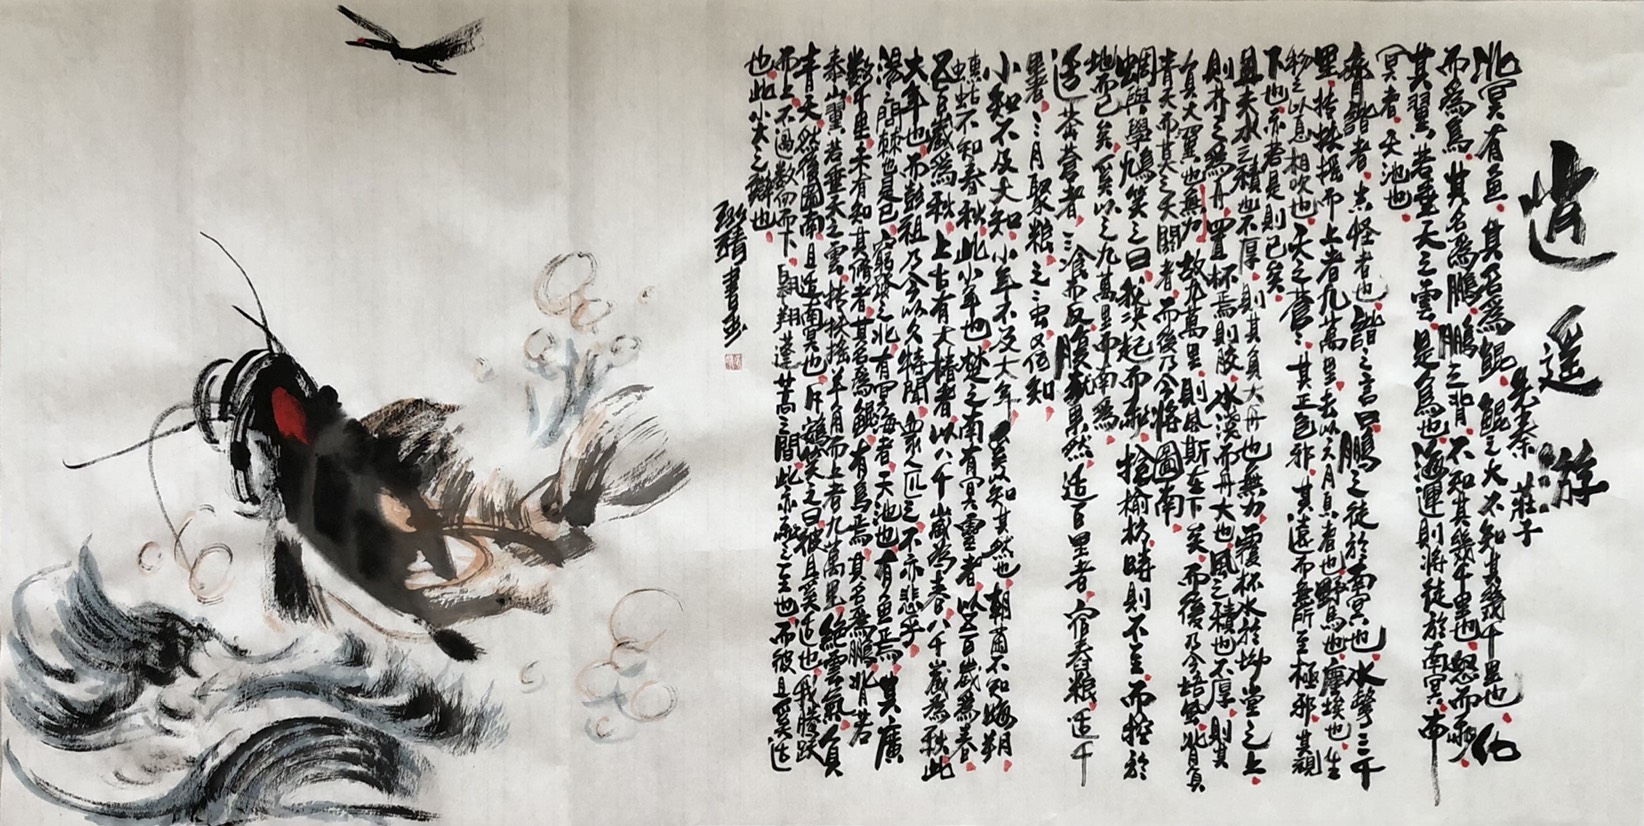 逍遥游
先秦 莊子
北冥有鱼。其名為鯤。鯤之大不知其幾千里也。化
而為鳥。其名為鵬。鵬之背不知其幾千里也。怒而飛。
其翼若垂天之雲。是鳥也。海運則將徙於南冥。南
冥者。天池也。
齊諧者。志怪者也。諧之言曰。鵬之徙於南冥也。水擊三千
里。摶扶摇而上者九萬里。去以六月息者也。野馬也。塵埃也。生
物之以息相吹也。天之蒼蒼。其正色邪。其遠而無所至極邪。其視
下也。亦若是則已矣。
且夫水之積也不厚。則其負大舟也無力。覆杯水於坳堂之上。
則芥之為舟。置杯焉則膠。水淺而舟大也。風之積也不厚。則其
負大翼也無力。故九萬里則風斯在下矣。而後乃今培風。背負
青天而莫之夭閼者。而後乃今將圖南。
蜩與學鳩笑之曰。我决起而飛。搶榆枋。時則不至而控於
地而已矣。奚以之九萬里而南為。
适莽蒼者。三飡而反。腹猶果然。适百里者。宿舂糧。适千
里者。三月聚糧。之二虫又何知。
小知不及大知。小年不及大年。奚以知其然也。朝菌不知晦朔。
蟪蛄不知春秋。此小年也。楚之南有冥靈者。以五百歲為春。
五百歲為秋。上古有大椿者。以八千歲為春。八千歲為秋。此
大年也。而彭祖乃今以久特聞。衆人匹之。不亦悲乎。
湯之問棘也是已。窮髮之北。有冥海者。天池也。有魚焉。其廣
數千里。未有知其脩者。其名為鯤。有鳥焉。其名為鵬。背若
泰山。翼若垂天之雲。摶扶搖羊角而上者九萬里。絶雲氣。負
青天。然後圖南。且适南冥也。斥鴳笑之曰。彼且奚适也。我騰躍
而上。不過數仞而下。翱翔蓬蒿之間。此亦飛之至也。而彼且奚适
也。此小大之辯也。